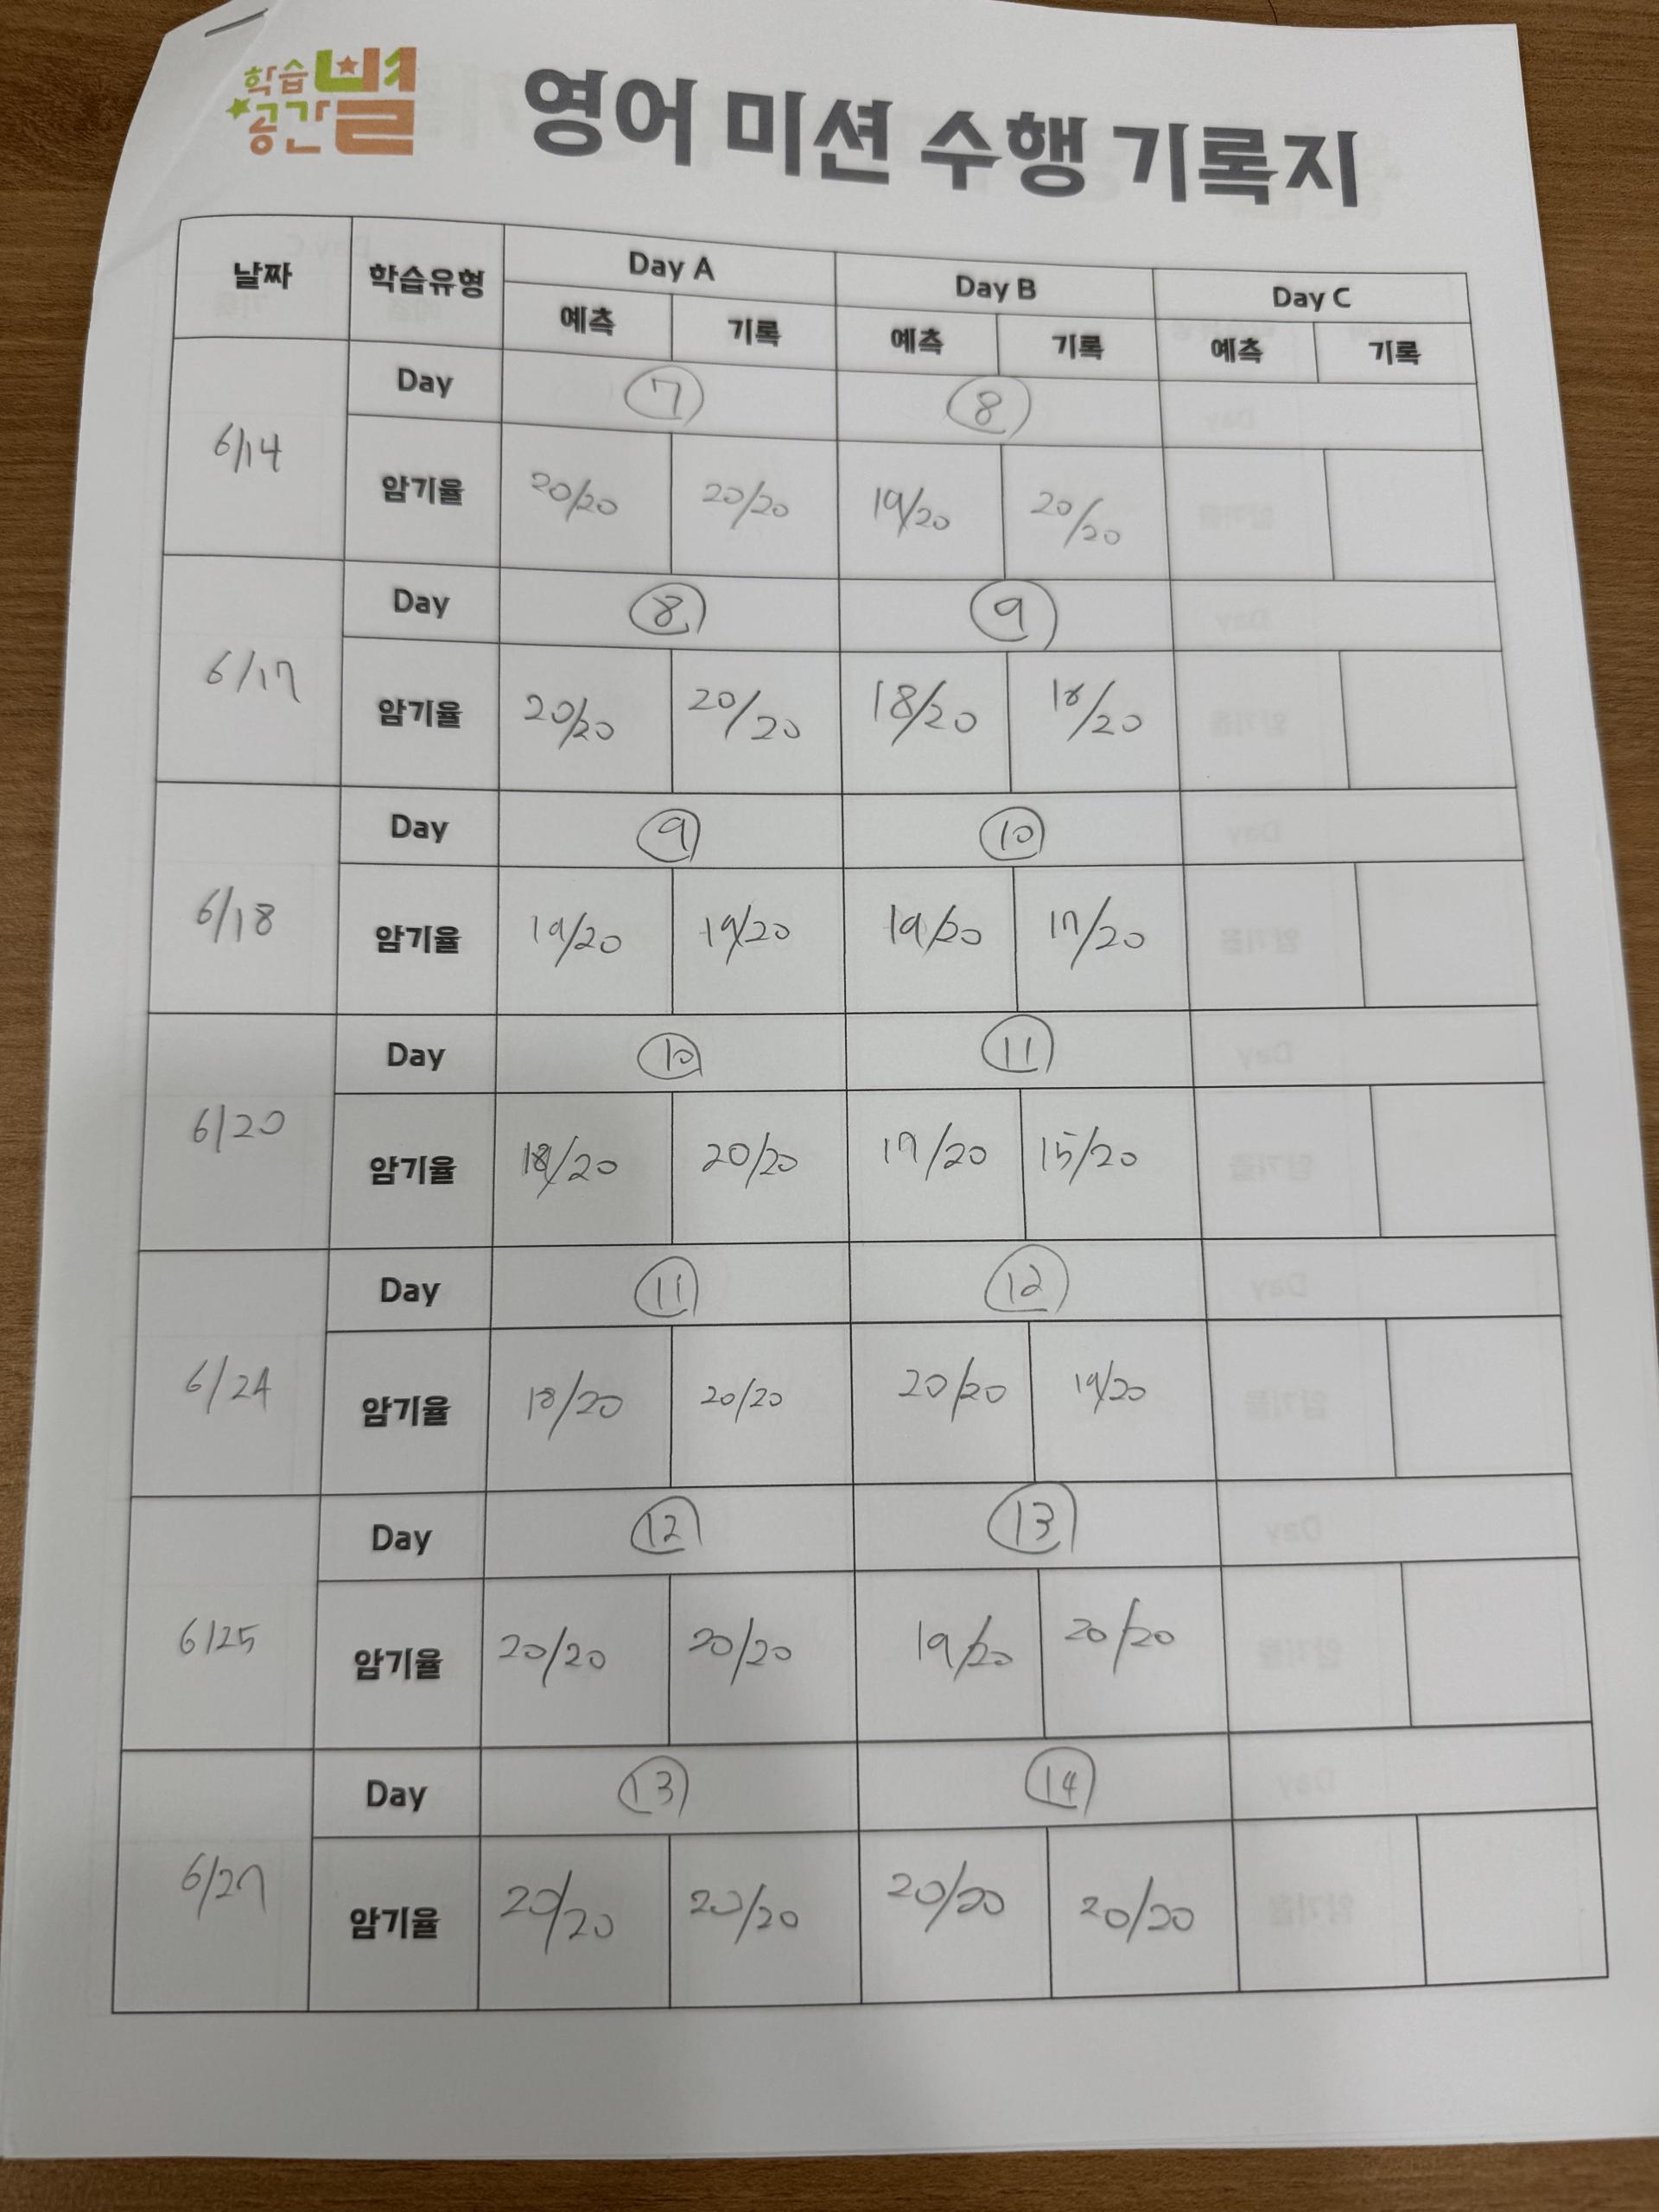 학습
공간
별
영어 미션 수행 기록지
날짜 학습유형 Day A Day B Day C
예측 기록 예측 기록 예측 기록
Day 7 8
6/14
암기율 20/20 20/20 19/20 20/20
Day 8 9
6/17
암기율 20/20 20/20 18/20 18/20
Day 9 10
6/18
암기율 19/20 19/20 19/20 17/20
Day 10 11
6/20
암기율 18/20 20/20 17/20 15/20
Day 11 12
6/24
암기율 18/20 20/20 20/20 19/20
Day 12 13
6/25
암기율 20/20 20/20 19/20 20/20
Day 13 14
6/27
암기율 20/20 20/20 20/20 20/20